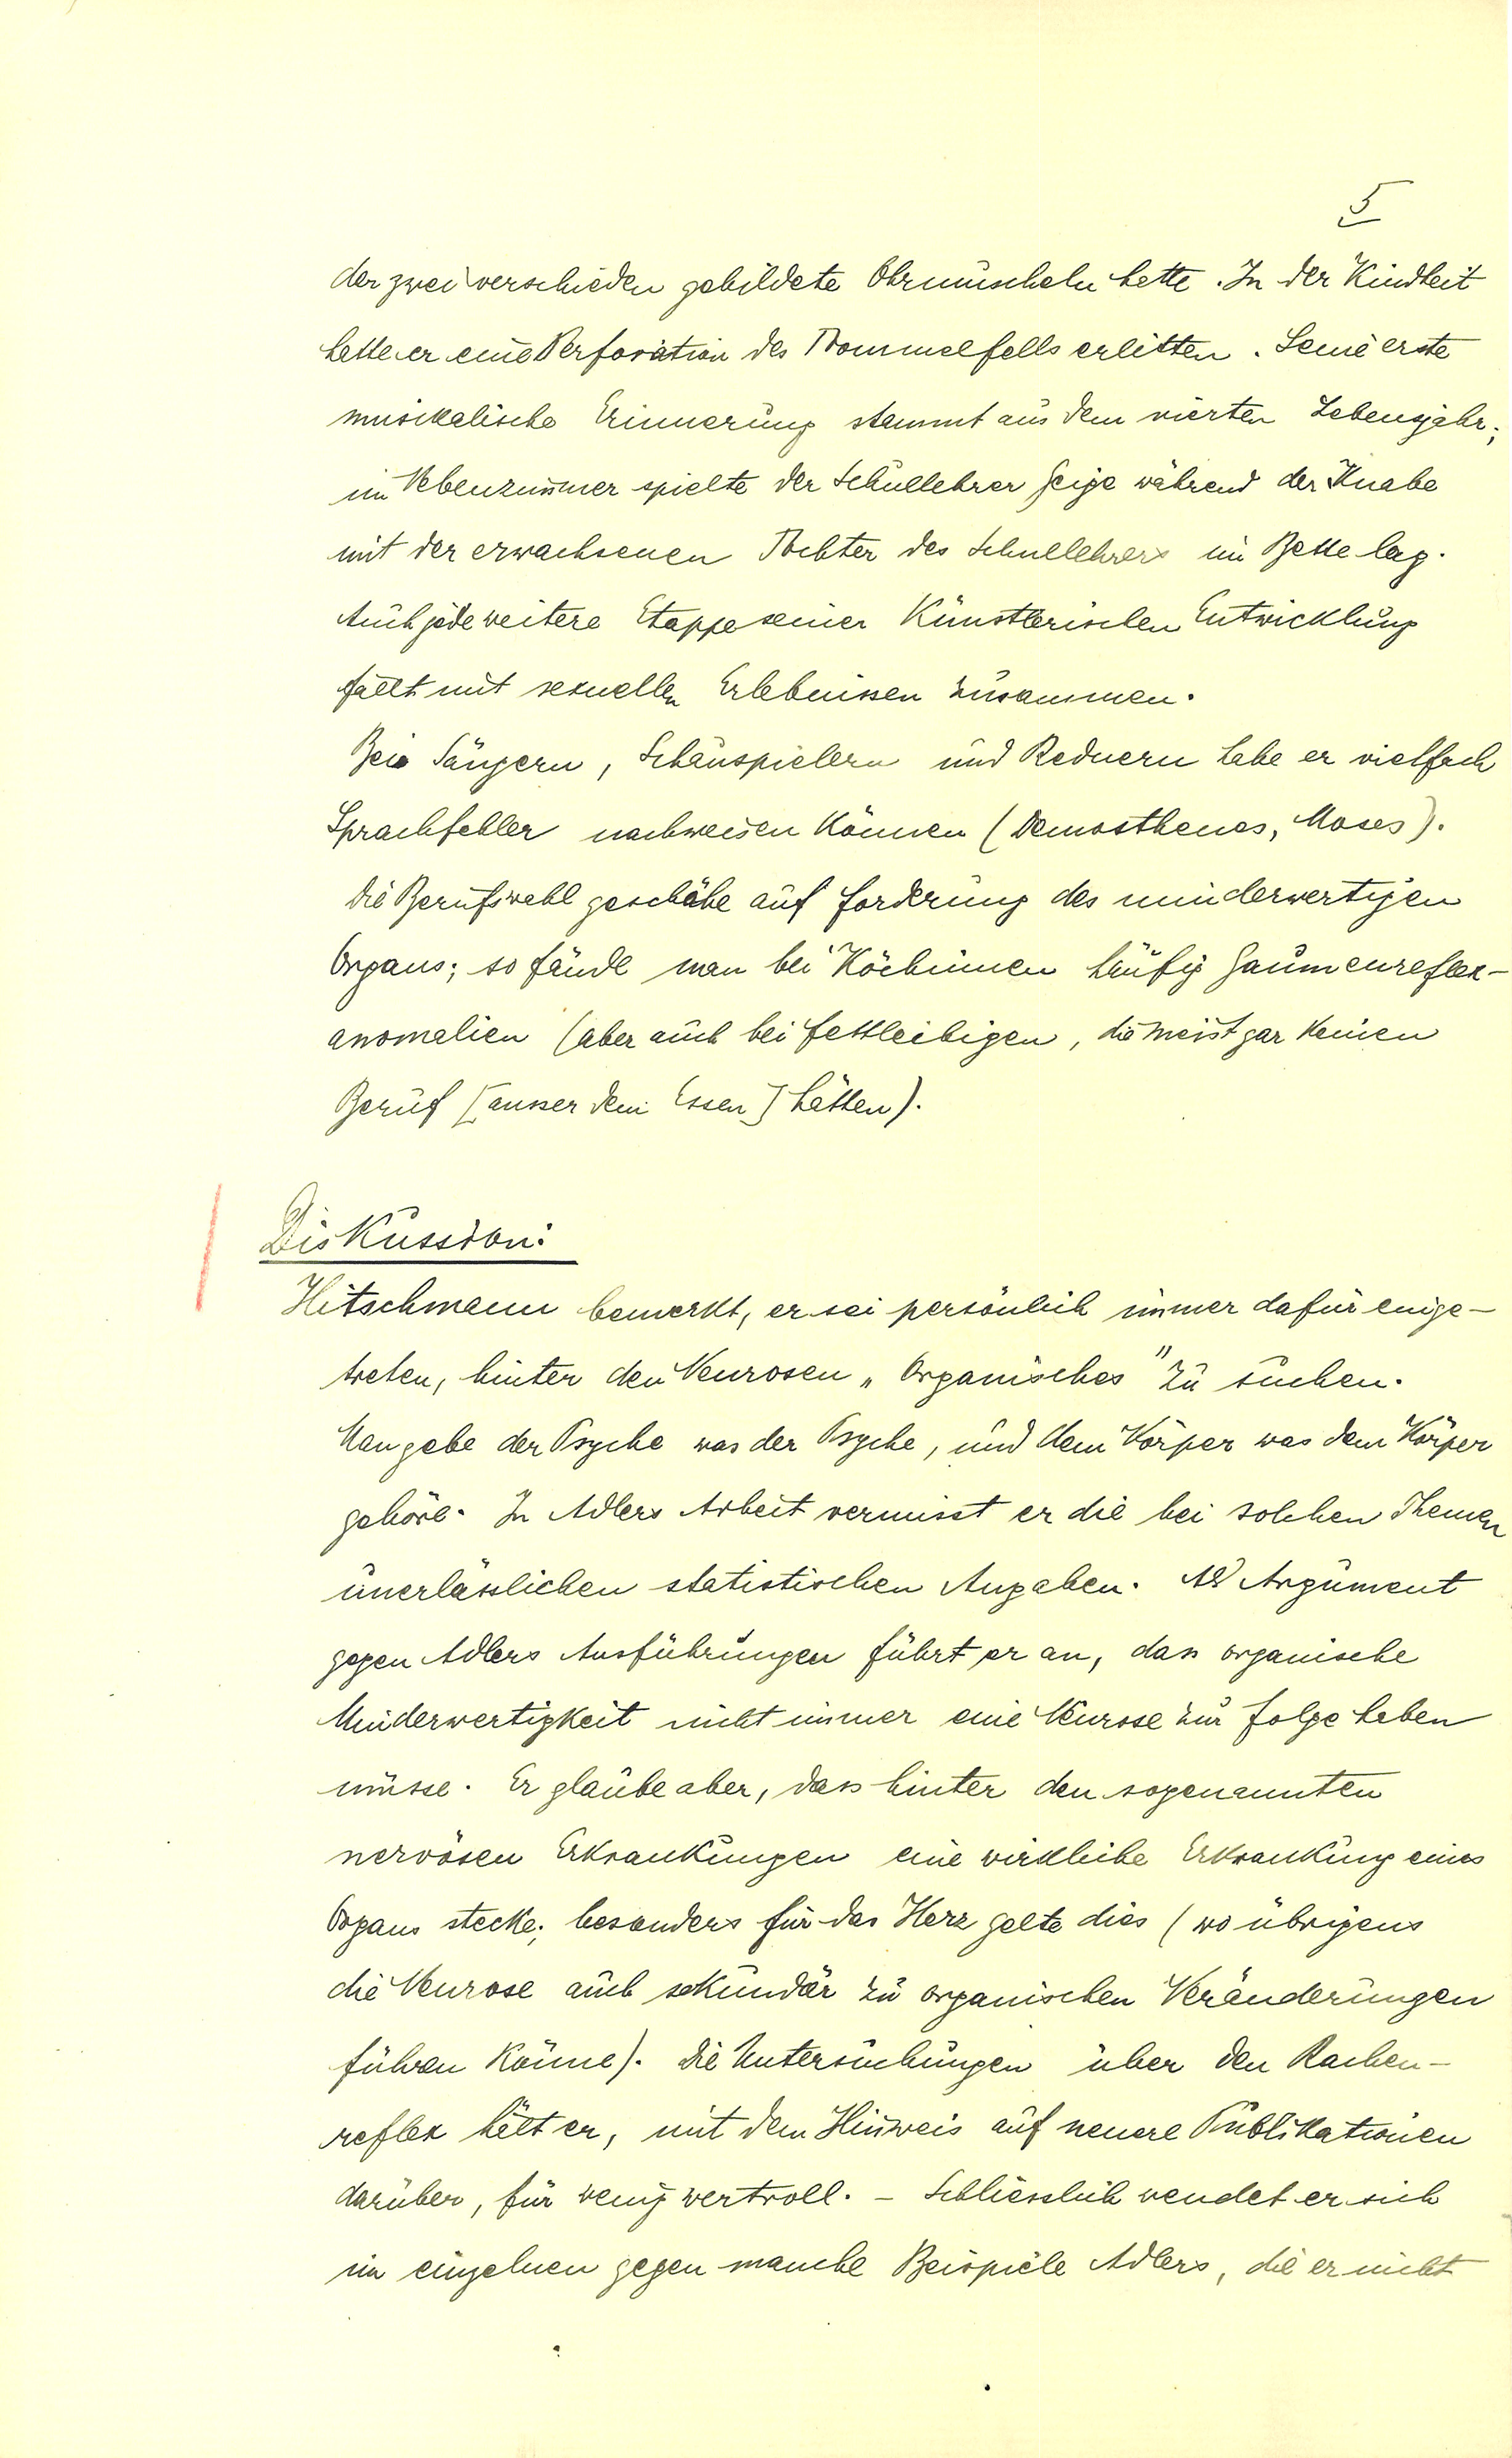 5
der zwei verschieden gebildete Ohrmuscheln hatte. In der Kindheit
hatte er eine Perforation des Trommelfells erlitten. Seine erste
musikalische Erinnerung stammt aus dem vierten Lebensjahr;
im Nebenzimmer spielte der Schullehrer Geige während der Knabe
mit der erwachsenen Tochter des Schullehrers im Bette lag.
Auch jede weitere Etappe seiner Künstlerischen Entwicklung
fällt mit sexuellen Erlebnissen zusammen.
Bei Sängern, Schauspielern und Rednern habe er vielfach
Sprachfehler nachweisen können (Demosthenes, Moses).
Die Berufswahl geschähe auf Forderung des minderwertigen
Organs; so fände man bei Köchinnen häufig Gaumenreflex-
anomalien (aber auch bei Fettleibigen, die meist gar keinen
Beruf [ausser dem Essen] hätten).
Diskussion:
Hitschmann bemerkt, er sei persönlich immer dafür einge-
treten, hinter den Neurosen „Organisches" zu suchen.
Man gebe der Psyche was der Psyche, und dem Körper was dem Körper
gehöre. In Adlers Arbeit vermisst er die bei solchen Themen
unerlässlichen statistischen Angaben. Als Argument
gegen Adlers Ausführungen führt er an, dass organische
Minderwertigkeit nicht immer eine Neurose zur Folge haben
müsse. Er glaube aber, dass hinter den sogenannten
nervösen Erkrankungen eine wirkliche Erkrankung eines
Organs stecke; besonders für das Herz gelte dies (wo übrigens
die Neurose auch sekundär zu organischen Veränderungen
führen könne). Die Untersuchungen über den Rachen-
reflex hält er, mit dem Hinweis auf neuere Publikationen
darüber, für wenig wertvoll. – Schliesslich wendet er sich
im einzelnen gegen manche Beispiele Adlers, die er nicht